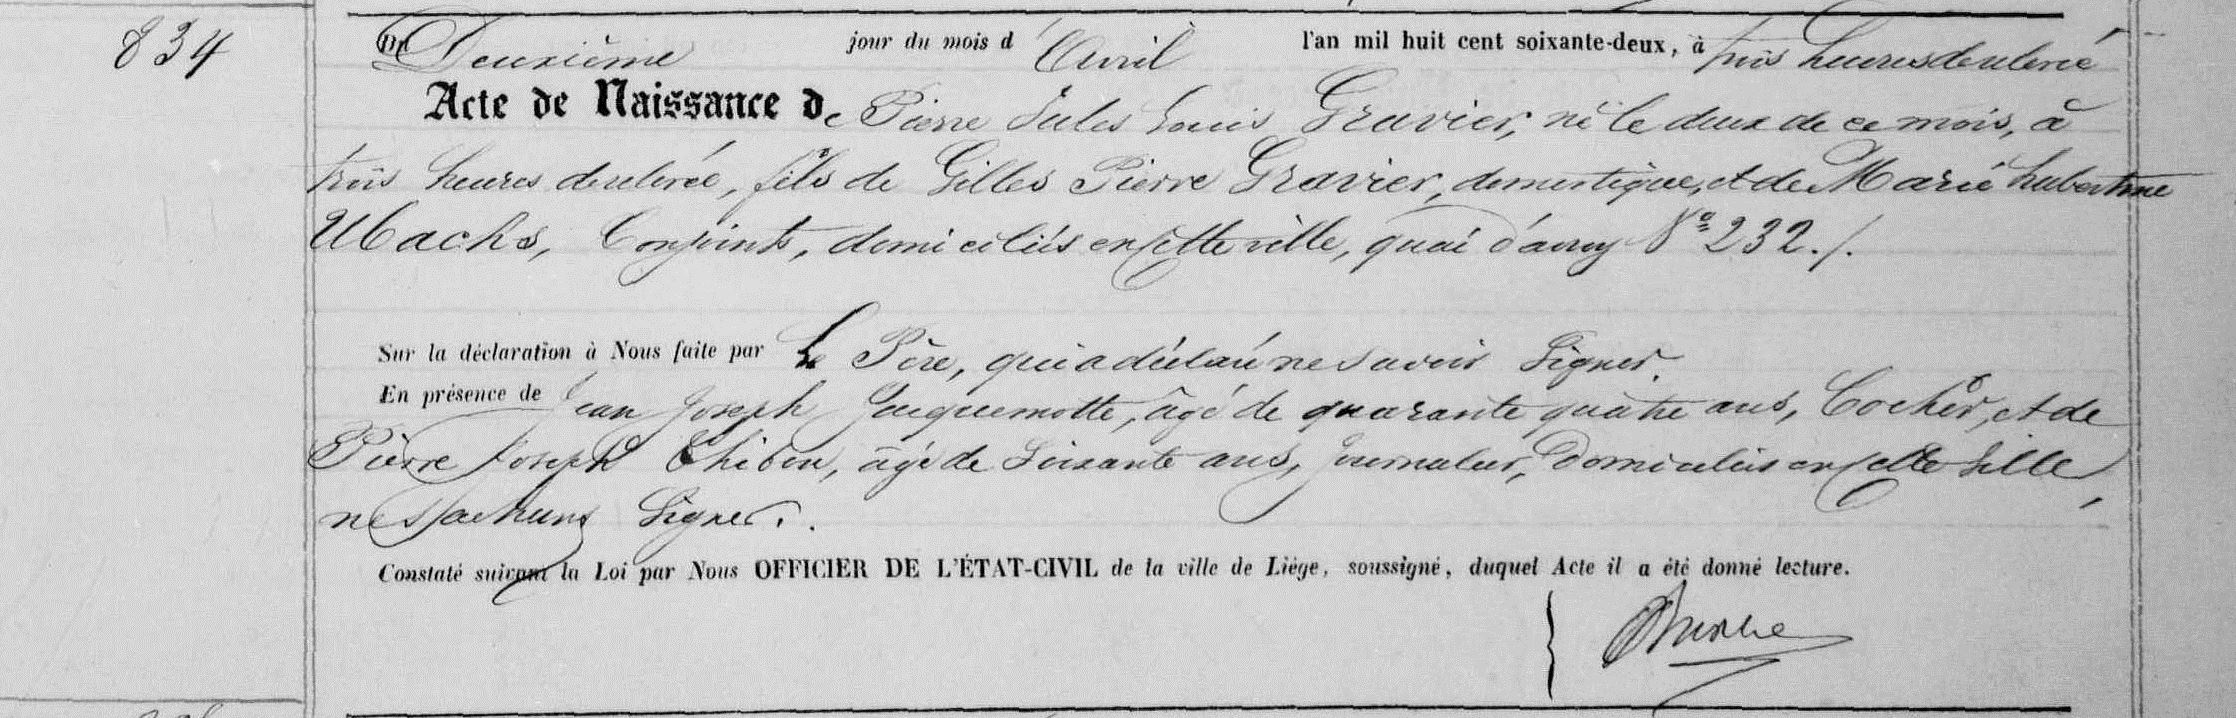 834
Du Deuxième jour du mois d'Avril l'an mil huit cent soixante-deux, à trois heures de relevée
Acte de Naissance de Pierre Jules Louis Gravier, né le deux de ce mois, à
trois heures de relevée, fils de Gilles Pierre Gravier, domestique, et de Marie hubertine
Wachs, Conjoints, domiciliés en cette ville, quai d'avroy N° 232./.
Sur la déclaration à Nous faite par Le Père, qui a déclaré ne savoir Signer.
En présence de Jean Joseph Jacquemotte, âgé de quarante quatre ans, Cocher, et de
Pierre Joseph Thibou, âgé de Soixante ans, Journalier, Domiciliés en cette Ville,
ne Sachant Signer.
Constaté suivant la Loi par Nous OFFICIER DE L'ÉTAT-CIVIL de la ville de Liége, soussigné, duquel Acte il a été donné lecture.